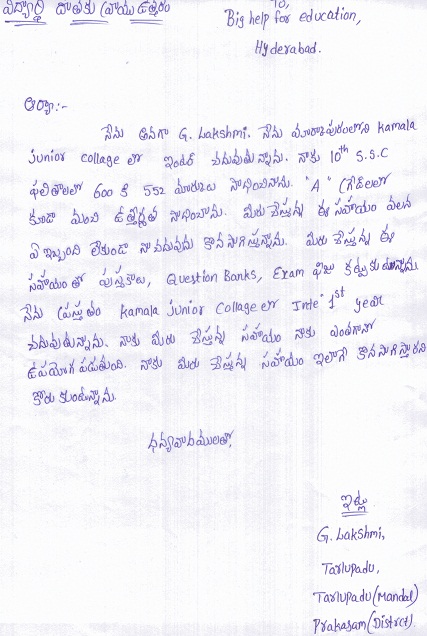 విద్యార్థి దాతకు వ్రాయు ఉత్తరం
To,
Big help for education,
Hyderabad.
ఆర్యా:-
నేను అనగా G. Lakshmi. నేను మార్కాపురంలోని Kamala
Junior Collage లో ఇంటర్ చదువుతున్నాను. నాకు 10th S.S.C
ఫలితాలలో 600 కి 552 మార్కులు సాధించినాను. "A" గ్రేడులలో
కూడా మంచి ఉత్తీర్ణత సాధించాను. మీరు చేస్తున్న ఈ సహాయం వలన
ఏ ఇబ్బంది లేకుండా నా చదువును కొనసాగిస్తున్నాను. మీరు చేస్తున్న ఈ
సహాయం తో పుస్తకాలు, Question Banks, Exam ఫీజు కట్టుకుంటున్నాను
నేను ప్రస్తుతం Kamala Junior Collage లో Inte 1st year
చదువుతున్నాను. నాకు మీరు చేస్తున్న సహాయం నాకు ఎంతగానో
ఉపయోగ పడుతుంది. నాకు మీరు చేస్తున్న సహాయం ఇలాగే కొనసాగిస్తారని
కోరు కుంటున్నాను.
ధన్యవాదములతో,
ఇట్లు
G. Lakshmi,
Tarlupadu,
Tarlupadu(Mandal)
Prakasam(District).